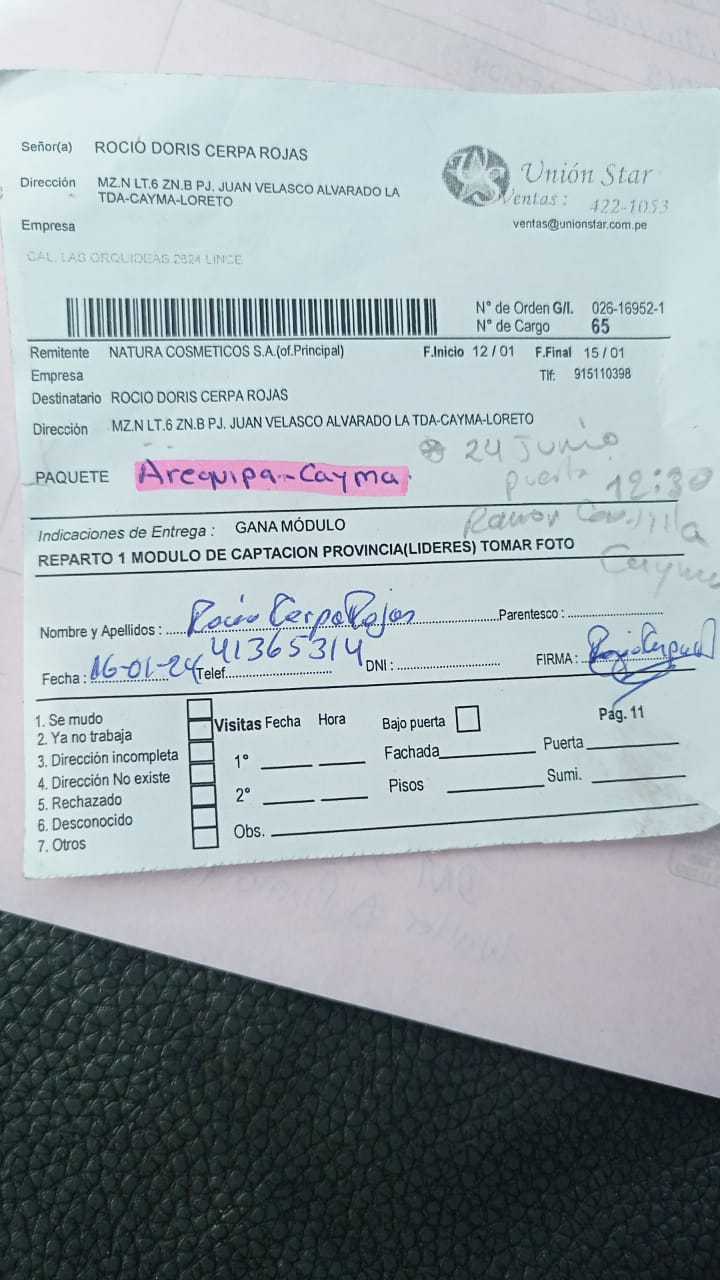 Señor(a) ROCIO DORIS CERPA ROJAS
Dirección MZ.N LT.6 ZN.B PJ. JUAN VELASCO ALVARADO LA
TDA-CAYMA-LORETO
Empresa
CAL. LAS ORQUIDEAS 2624 LINCE
Unión Star
Ventas: 422-1053
ventas@unionstar.com.pe
N° de Orden G/I. 026-16952-1
N° de Cargo 65
Remitente NATURA COSMETICOS S.A.(of.Principal) F.Inicio 12 / 01 F.Final 15 / 01
Empresa Tlf: 915110398
Destinatario ROCIO DORIS CERPA ROJAS
Dirección MZ.N LT.6 ZN.B PJ. JUAN VELASCO ALVARADO LA TDA-CAYMA-LORETO
24 Junio
PAQUETE Arequipa-Cayma
puerta 12:30
Ramon
Cayma
Indicaciones de Entrega : GANA MÓDULO
REPARTO 1 MODULO DE CAPTACION PROVINCIA(LIDERES) TOMAR FOTO
Nombre y Apellidos : Rocio Cerpa Rojas Parentesco :
Fecha : 16-01-24 Telef. 41365314 DNI : FIRMA :
Pág. 11
1. Se mudo
2. Ya no trabaja
3. Dirección incompleta
4. Dirección No existe
5. Rechazado
6. Desconocido
7. Otros
Visitas Fecha Hora Bajo puerta
1° Fachada Puerta
2° Pisos Sumi.
Obs.